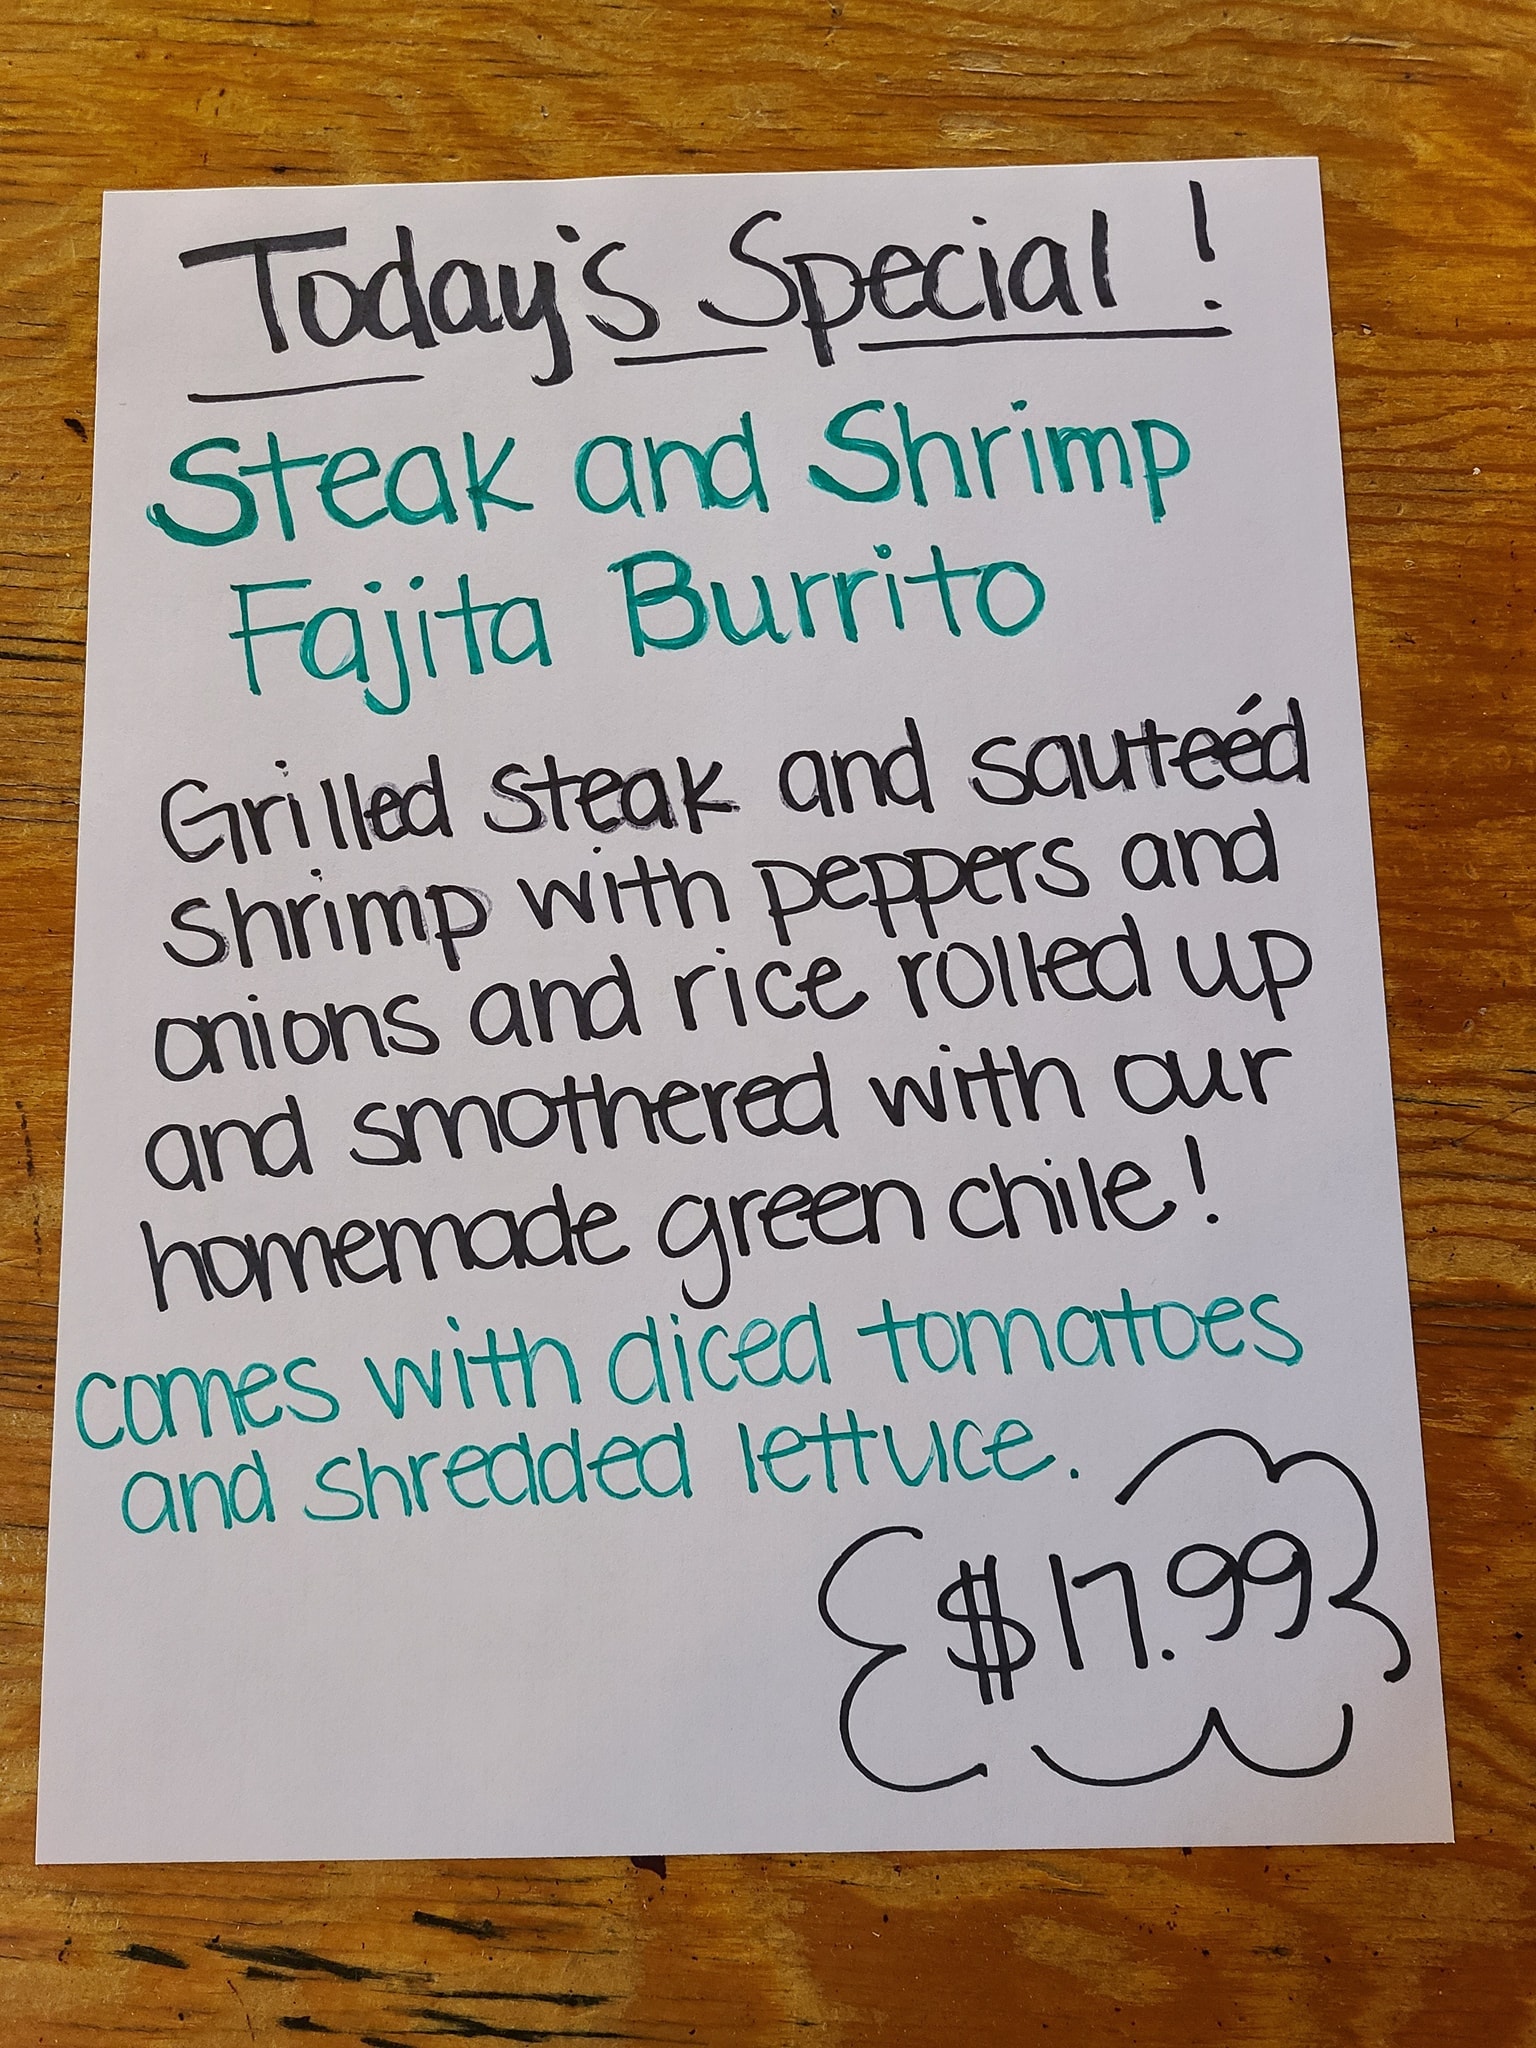 Today's Special!
Steak and Shrimp
Fajita Burrito
Grilled steak and sauteéd
shrimp with peppers and
onions and rice rolled up
and smothered with our
homemade green chile!
comes with diced tomatoes
and shredded lettuce.
$17.99